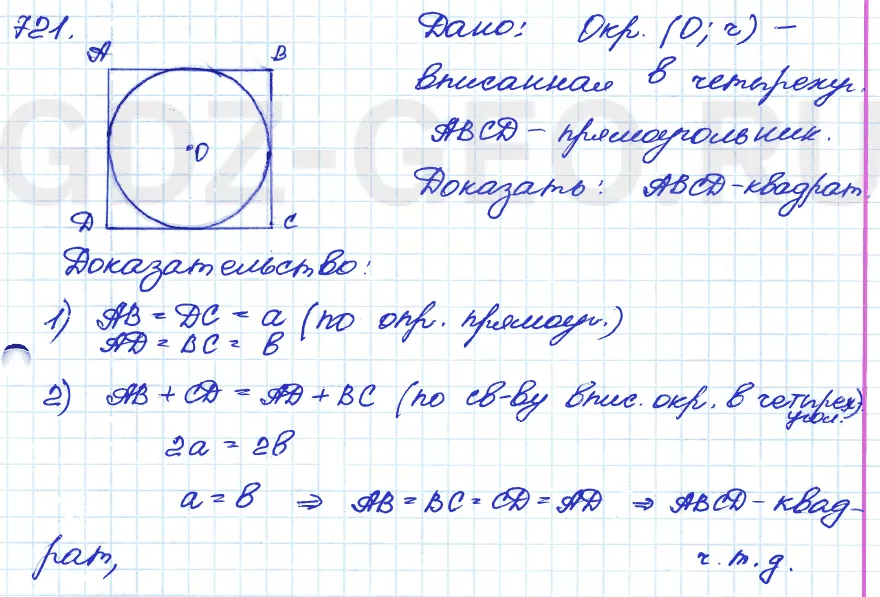 721.
A B
O
D C
Дано: Окр. (O; r) –
вписанная в четыреху.
ABCD – прямоугольник.
Доказать: ABCD – квадрат.
Доказательство:
1) AB = DC = a (по опр. прямоуг.)
AD = BC = в
2) AB + CD = AD + BC (по св-ву впис. окр. в четырех
угол.)
2a = 2в
a = в ⇒ AB = BC = CD = AD ⇒ ABCD – квад-
рат,
ч.т.д.
GDZ-GEO.RU